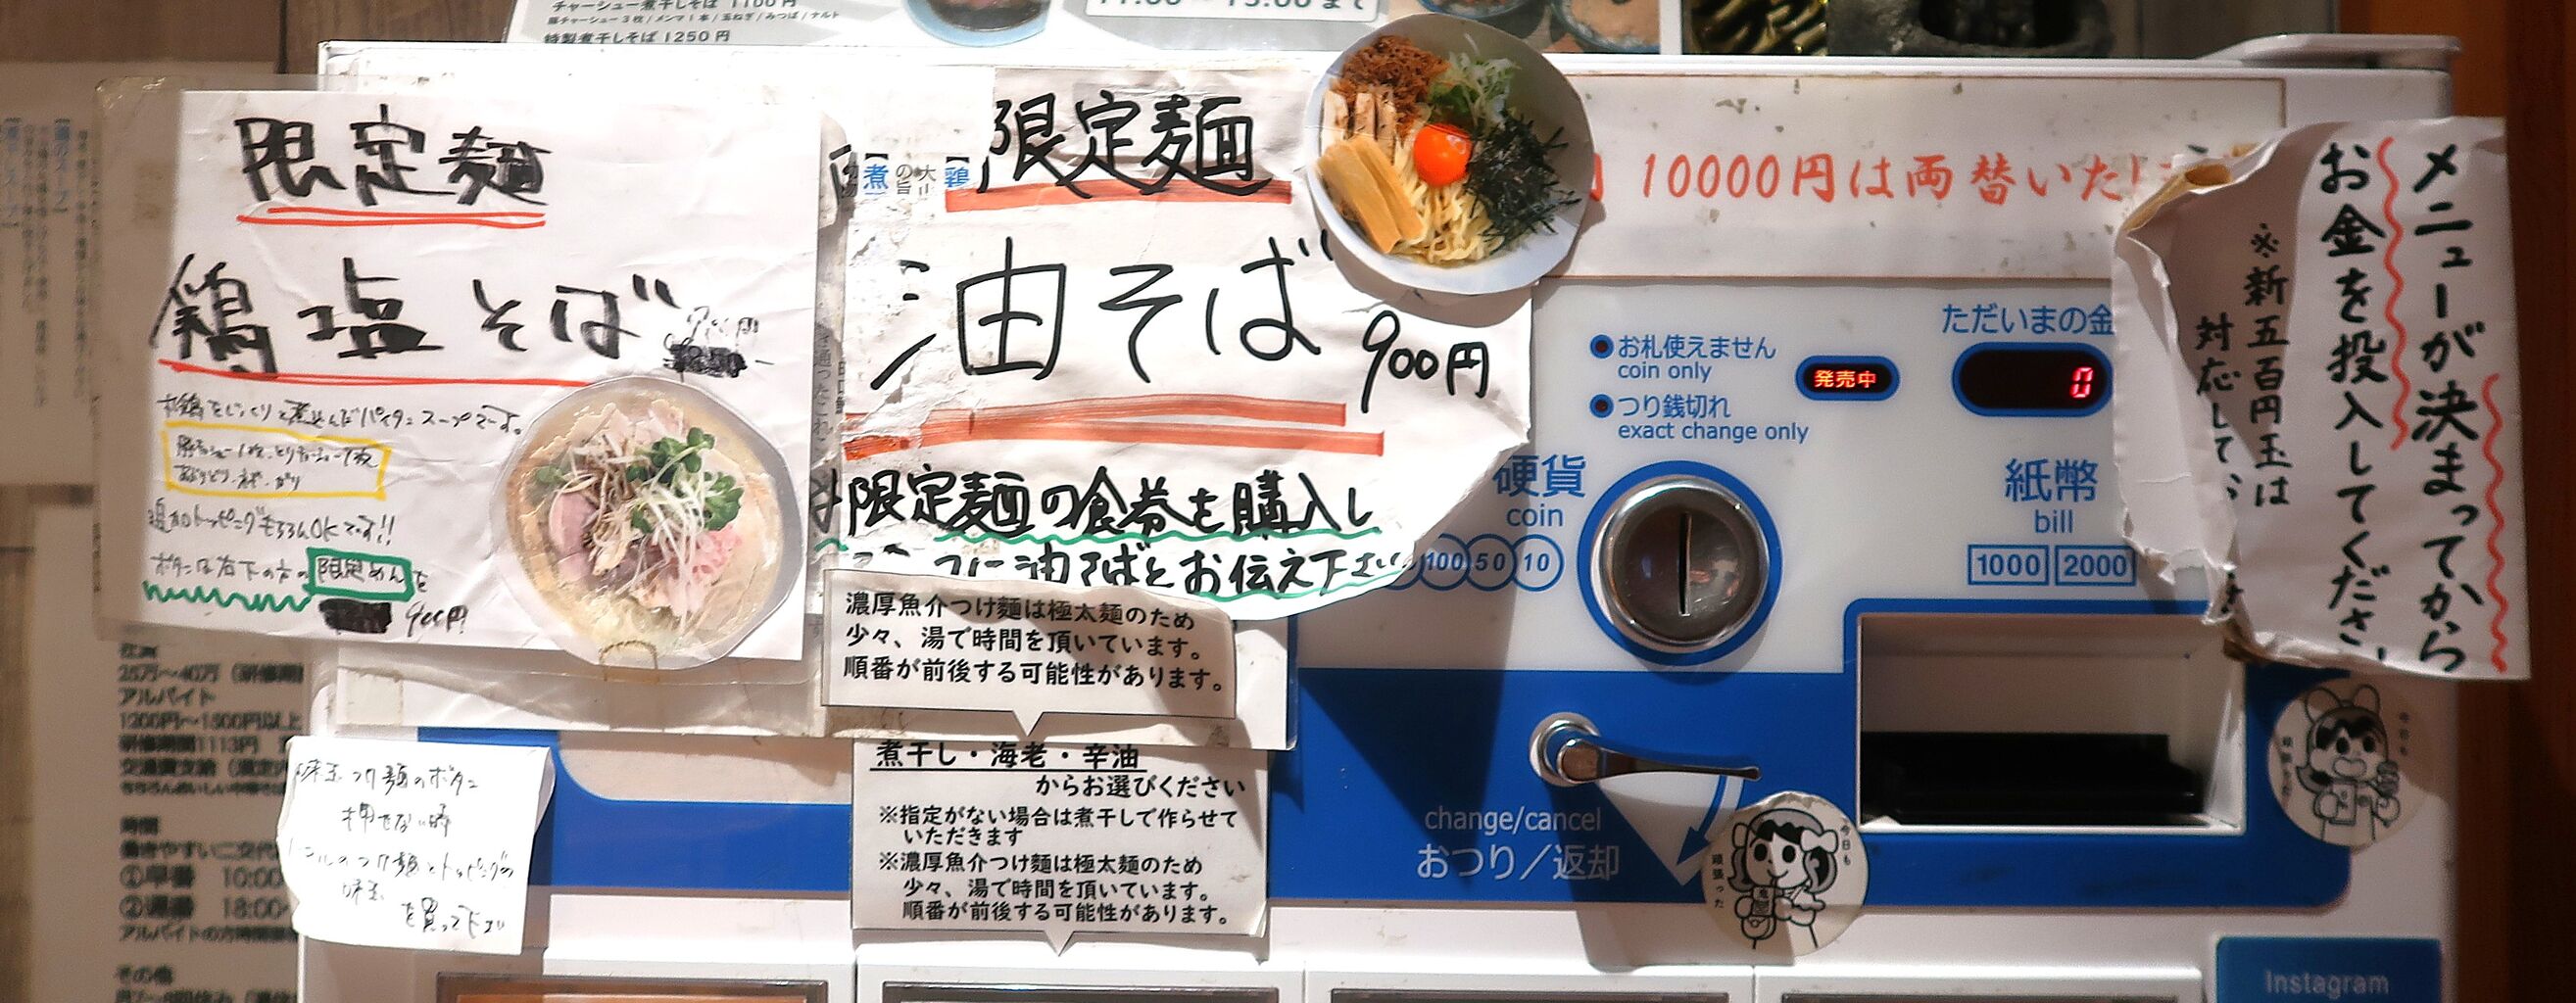 チャーシュー煮干しそば 1100円
豚チャーシュー3枚/メンマ1本/玉ねぎ/みつば/ナルト
特製煮干しそば 1250円
限定麺
鶏塩そば
900円
丸鶏をじっくりと煮込んだパイタンスープです。
豚チャーシュー1枚、とりチャーシュー1枚
追加トッピングもちろんOKです!!
ボタンは右下の方の限定めんを
900円
限定麺
油そば
900円
限定麺の食券を購入し
油そばとお伝え下さい
濃厚魚介つけ麺は極太麺のため
少々、湯で時間を頂いています。
順番が前後する可能性があります。
煮干し・海老・辛油
からお選びください
※指定がない場合は煮干しで作らせて
いただきます
※濃厚魚介つけ麺は極太麺のため
少々、湯で時間を頂いています。
順番が前後する可能性があります。
味玉つけ麺のボタン
押せない時
ノーマルのつけ麺とトッピングの
味玉
を買って下さい
25万〜40万
アルバイト
1200円〜1500円以上
研修期間1113円
時間
①早番 10:00
②遅番 18:00
その他
10000円は両替いた
お札使えません
coin only
つり銭切れ
exact change only
発売中
ただいまの金
0
硬貨
coin
100 50 10
紙幣
bill
1000 2000
change/cancel
おつり/返却
メニューが決まってから
お金を投入してくださ
※新五百円玉は
対応して
今日も
頑張った
今日も
頑張った
Instagram